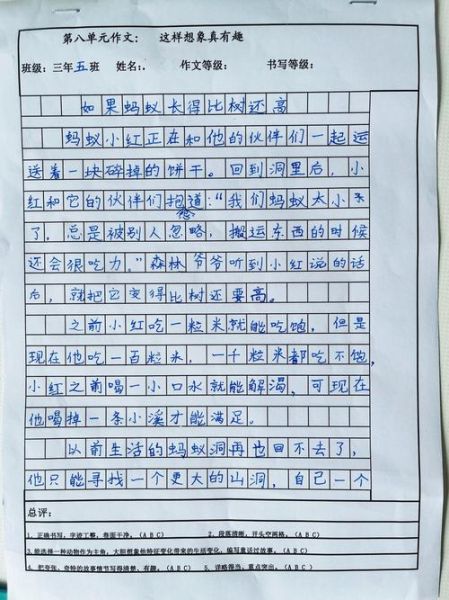 第八单元作文： 这样想象真有趣
班级：三年五班 姓名：. 作文等级： 书写等级：
如果蚂蚁长得比树还高
蚂蚁小红正在和他的伙伴们一起运
送着一块碎掉的饼干。回到洞里后，小
红和它的伙伴们抱怨道：“我们蚂蚁太小
了，总是被别人忽略，搬运东西的时候
还会很吃力。”森林爷爷听到小红说的话
后，就把它变得比树还要高。
之前小红吃一粒米就能吃饱，但是
现在他吃一百粒米，一千粒米都吃不饱，
小红之前喝一小口水就能解渴，可现在
他喝掉一条小溪才能满足。
以前生活的蚂蚁洞再也回不去了，
他只能寻找一个更大的山洞，自己一个
总评：
1、正确书写，字迹工整，卷面干净。（A B C） 2、段落清晰，开头空两格。（A B C）
3、能选择一种动物作为主角，大胆想象他特征变化带来的生活变化，编写童话过故事。（A B C）
4、把夸张、奇特的故事情节写得清楚、有趣。（A B C） 5、详略得当，重点突出。（A B C）